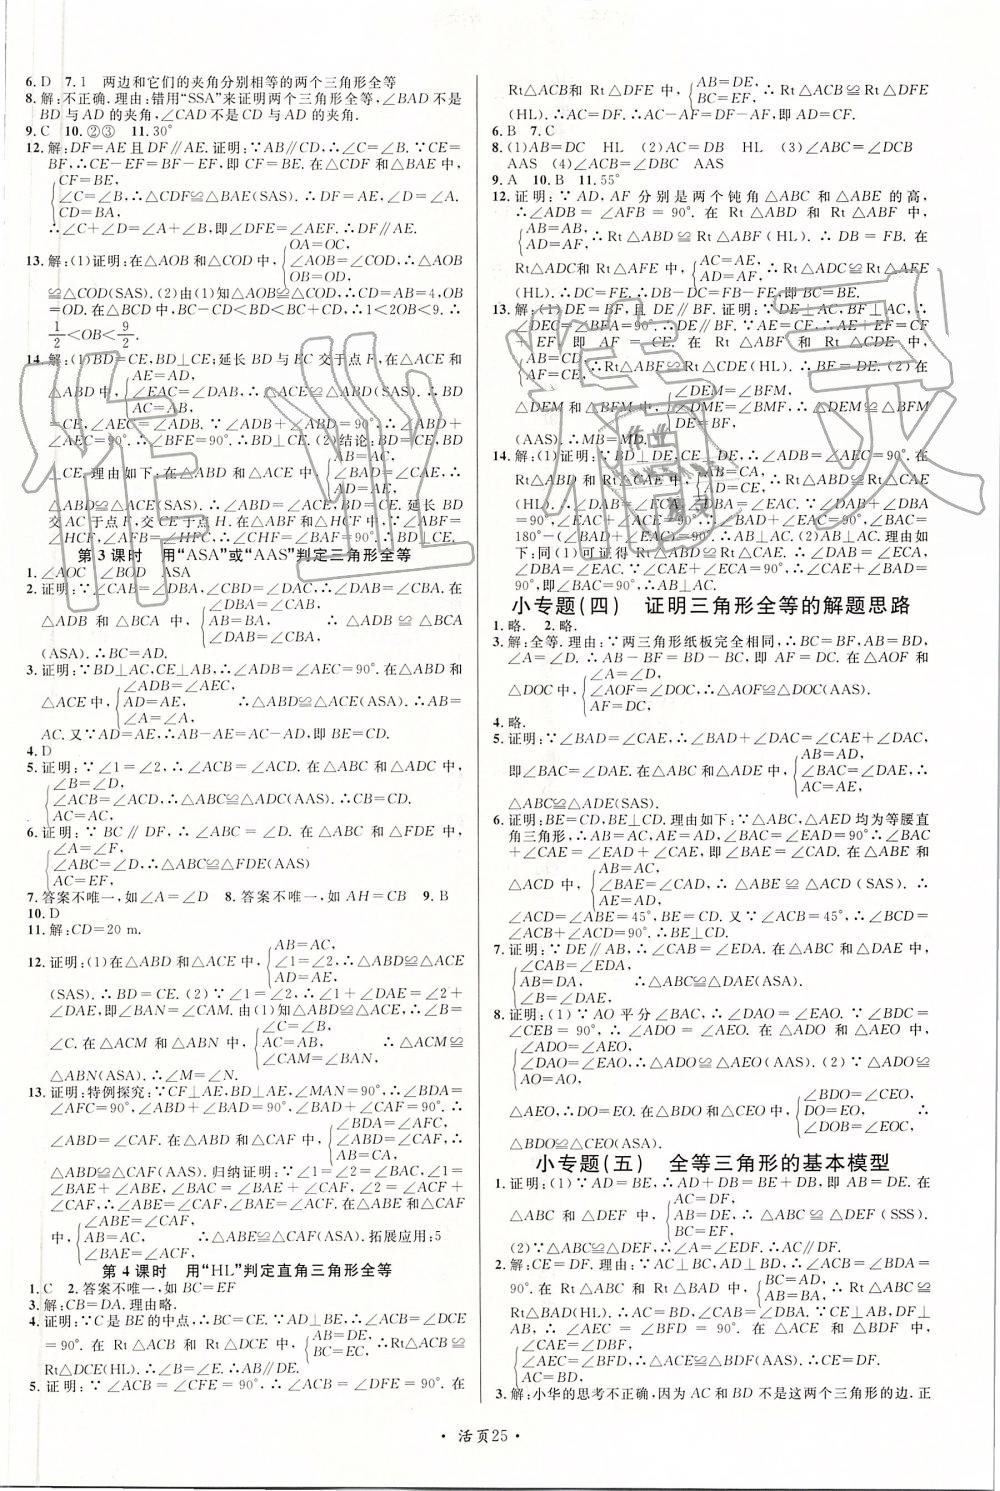 6. D 7. 1 两边和它们的夹角分别相等的两个三角形全等
8. 解:不正确. 理由:错用“SSA”来证明两个三角形全等,∠BAD 不是
BD 与 AD 的夹角,∠CAD 不是 CD 与 AD 的夹角.
9. C 10. ②③ 11. 30°
12. 解:DF=AE 且 DF∥AE. 证明:∵AB∥CD,∴∠C=∠B. ∵CE=
BF,∴CE-EF=BF-EF,即 CF=BE. 在△CDF 和△BAE 中,
{CF=BE,
∠C=∠B,∴△CDF≌△BAE(SAS). ∴DF=AE,∠D=∠A.
CD=BA,
∴∠C+∠D=∠A+∠B,即∠DFE=∠AEF. ∴DF∥AE.
13. 解:(1)证明:在△AOB 和△COD 中,{OA=OC,
∠AOB=∠COD,∴△AOB
OB=OD,
≌△COD(SAS). (2)由(1)知△AOB≌△COD,∴CD=AB=4,OB=
OD. 在△BCD 中,BC-CD<BD<BC+CD,∴1<2OB<9. ∴
1/2<OB<9/2.
14. 解:(1)BD=CE,BD⊥CE;延长 BD 与 EC 交于点 F,在△ACE 和
△ABD 中,{AE=AD,
∠EAC=∠DAB,∴△ACE≌△ABD(SAS). ∴BD
AC=AB,
=CE. ∠AEC=∠ADB. ∵∠ADB+∠ABD=90°,∴∠ABD+
∠AEC=90°. ∴∠BFE=90°. ∴BD⊥CE. (2)结论:BD=CE,BD
⊥CE. 理由如下:在△ABD 和△ACE 中,
∴△ABD≌△ACE(SAS). ∴BD=CE. 延长 BD
交 AC 于点 F,交 CE 于点 H. 在△ABF 和△HCF 中,∵∠ABF=
∠HCF,∠AFB=∠HFC,∴∠CHF=∠BAF=90°. ∴BD⊥CE.
第 3 课时 用“ASA”或“AAS”判定三角形全等
1. ∠AOC ∠BOD ASA
2. 证明:∵∠CAB=∠DBA,∠CBD=∠DAC,∴∠DAB=∠CBA. 在
△ADB 和△BCA 中,{∠DBA=∠CAB,
AB=BA,
∠DAB=∠CBA,
∴△ADB≌△BCA
(ASA). ∴BC=AD.
3. 证明:∵BD⊥AC,CE⊥AB,∴∠ADB=∠AEC=90°. 在△ABD 和
△ACE 中,{∠ADB=∠AEC,
AD=AE,
∠A=∠A,
∴△ABD≌△ACE(ASA). ∴AB=
AC. 又∵AD=AE,∴AB-AE=AC-AD,即 BE=CD.
4. D
5. 证明:∵∠1=∠2,∴∠ACB=∠ACD. 在△ABC 和△ADC 中,
{∠B=∠D,
∠ACB=∠ACD,∴△ABC≌△ADC(AAS). ∴CB=CD.
AC=AC,
6. 证明:∵BC∥DF,∴∠ACB=∠D. 在△ABC 和△FDE 中,
{∠A=∠F,
∠ABC=∠D,∴△ABC≌△FDE(AAS)
AC=EF,
7. 答案不唯一,如∠A=∠D 8. 答案不唯一,如 AH=CB 9. B
10. D
11. 解:CD=20 m.
12. 证明:(1)在△ABD 和△ACE 中,{AB=AC,
∠1=∠2,∴△ABD≌△ACE
AD=AE,
(SAS). ∴BD=CE. (2)∵∠1=∠2,∴∠1+∠DAE=∠2+
∠DAE,即∠BAN=∠CAM. 由(1)知△ABD≌△ACE,∴∠B=
∠C. 在△ACM 和△ABN 中,{∠C=∠B,
AC=AB,
∠CAM=∠BAN,
∴△ACM≌
△ABN(ASA). ∴∠M=∠N.
13. 证明:特例探究:∵CF⊥AE,BD⊥AE,∠MAN=90°,∴∠BDA=
∠AFC=90°,∠ABD+∠BAD=90°,∠BAD+∠CAF=90°. ∴
∠ABD=∠CAF. 在△ABD 和△CAF 中,{∠BDA=∠AFC,
∠ABD=∠CAF,∴
AB=CA,
△ABD≌△CAF(AAS). 归纳证明:∵∠1=∠2=∠BAC,∠1=
∠BAE+∠ABE,∠BAC=∠BAE+∠CAF,∠2=∠ACF+
∠CAF,∴∠ABE=∠CAF,∠BAE=∠ACF. 在△ABE 和△CAF
中,{∠ABE=∠CAF,
AB=AC,
∠BAE=∠ACF,
∴△ABE≌△CAF(ASA). 拓展应用:5
第 4 课时 用“HL”判定直角三角形全等
1. C 2. 答案不唯一,如 BC=EF
3. 解:CB=DA. 理由略.
4. 证明:∵C 是 BE 的中点,∴BC=CE. ∵AD⊥BE,∴∠ACB=∠DCE
=90°. 在 Rt△ABC 和 Rt△DCE 中,{AB=DE,
BC=EC,
∴Rt△ACB≌
Rt△DCE(HL). ∴∠B=∠E. ∴AB∥DE.
5. 证明:∵∠ACB=∠CFE=90°,∴∠ACB=∠DFE=90°. 在
Rt△ACB 和 Rt△DFE 中,{AB=DE,
BC=EF,
∴Rt△ACB≌Rt△DFE
(HL). ∴AC=DF. ∴AC-AF=DF-AF,即 AD=CF.
6. B 7. C
8. (1)AB=DC HL (2)AC=DB HL (3)∠ABC=∠DCB
AAS (4)∠ACB=∠DBC AAS
9. A 10. B 11. 55°
12. 证明:∵AD,AF 分别是两个钝角△ABC 和△ABE 的高,
∴∠ADB=∠AFB=90°. 在 Rt△ABD 和 Rt△ABF 中,
{AB=AB,
AD=AF,
∴Rt△ABD≌Rt△ABF(HL). ∴DB=FB. 在
Rt△ADC和 Rt△AFE 中,{AC=AE,
AD=AF,
∴Rt△ADC≌Rt△AFE
(HL). ∴DC=FE. ∴DB-DC=FB-FE,即 BC=BE.
13. 解:(1)DE=BF,且 DE∥BF. 证明:∵DE⊥AC,BF⊥AC,∴
∠DEC=∠BFA=90°. ∵AE=CE,∴AE+EF=CF+
EF,即 AF=CE. 在 Rt△ABF 和 Rt△CDE 中,
{AB=CD,
AF=CE,
∴Rt△ABF≌Rt△CDE(HL). ∴BF=DE. (2)在
△DEM 和△BFM 中,{∠DEM=∠BFM,
∠DME=∠BMF,∴△DEM≌△BFM
DE=BF,
(AAS). ∴MB=MD.
14. 解:(1)证明:∵BD⊥DE,CE⊥DE,∴∠BDA=∠AEC=90°. 在
Rt△ABD 和 Rt△CAE 中,
∴∠DBA=∠EAC. ∵∠DAB+∠DBA
=90°,∴∠EAC+∠DAB=90°. ∴∠BAC=
180°-(∠EAC+∠DAB)=90°. ∴AB⊥AC. (2)AB⊥AC. 理由如
下:同(1)可证 Rt△ABD≌Rt△CAE. ∴∠DAB=∠ECA,
∠DBA=∠EAC. ∵∠CAE+∠ECA=90°,∴∠CAE+∠BAD=
90°,即∠BAC=90°. ∴AB⊥AC.
小专题(四) 证明三角形全等的解题思路
1. 略. 2. 略.
3. 解:全等. 理由:∵两三角形纸板完全相同,∴BC=BF,AB=BD,
∠A=∠D. ∴AB-BF=BD-BC,即 AF=DC. 在△AOF 和
△DOC 中,{∠A=∠D,
∠AOF=∠DOC,∴△AOF≌△DOC(AAS).
AF=DC,
4. 略.
5. 证明:∵∠BAD=∠CAE,∴∠BAD+∠DAC=∠CAE+∠DAC,
即∠BAC=∠DAE. 在△ABC 和△ADE 中,{AB=AD,
∠BAC=∠DAE,∴
AC=AE,
△ABC≌△ADE(SAS).
6. 证明:BE=CD,BE⊥CD. 理由如下:∵△ABC,△AED 均为等腰直
角三角形,∴AB=AC,AE=AD,∠BAC=∠EAD=90°∴∠BAC
+∠CAE=∠EAD+∠CAE,即∠BAE=∠CAD. 在△BAE 和
△CAD 中,{AB=AC,
∠BAE=∠CAD,∴△BAE≌△CAD(SAS). ∴
AE=AD,
∠ACD=∠ABE=45°,BE=CD. 又∵∠ACB=45°,∴∠BCD=
∠ACB+∠ACD=90°. ∴BE⊥CD.
7. 证明:∵DE∥AB,∴∠CAB=∠EDA. 在△ABC 和△DAE 中,
{∠CAB=∠EDA,
AB=DA,
∠B=∠DAE,
∴△ABC≌△DAE(ASA).
8. 证明:(1)∵AO 平分∠BAC,∴∠DAO=∠EAO. ∵∠BDC=
∠CEB=90°,∴∠ADO=∠AEO. 在△ADO 和△AEO 中,
{∠ADO=∠AEO,
∠DAO=∠EAO,∴△ADO≌△AEO(AAS). (2)∵△ADO≌
AO=AO,
△AEO,∴DO=EO. 在△BDO 和△CEO 中,{∠BDO=∠CEO,
DO=EO,
∠DOB=∠EOC,
∴
△BDO≌△CEO(ASA).
小专题(五) 全等三角形的基本模型
1. 证明:(1)∵AD=BE,∴AD+DB=BE+DB,即 AB=DE. 在
△ABC 和△DEF 中,{AC=DF,
AB=DE,
BC=EF,
∴△ABC≌△DEF(SSS).
(2)∵△ABC≌△DEF,∴∠A=∠EDF. ∴AC∥DF.
2. 解:CE=DF. 理由:∵AC⊥BC,AD⊥BD,∴∠ACB=∠BDA
=90°. 在 Rt△ABC 和 Rt△BAD 中,{BC=AD,
AB=BA,
∴Rt△ABC≌
Rt△BAD(HL). ∴AC=BD,∠CAB=∠DBA. ∵CE⊥AB,DF⊥
AB,∴∠AEC=∠BFD=90°. 在△ACE 和△BDF 中,
{∠CAE=∠DBF,
∠AEC=∠BFD,∴△ACE≌△BDF(AAS). ∴CE=DF.
AC=BD,
3. 解:小华的思考不正确,因为 AC 和 BD 不是这两个三角形的边. 正
· 活页25 ·
作业精灵